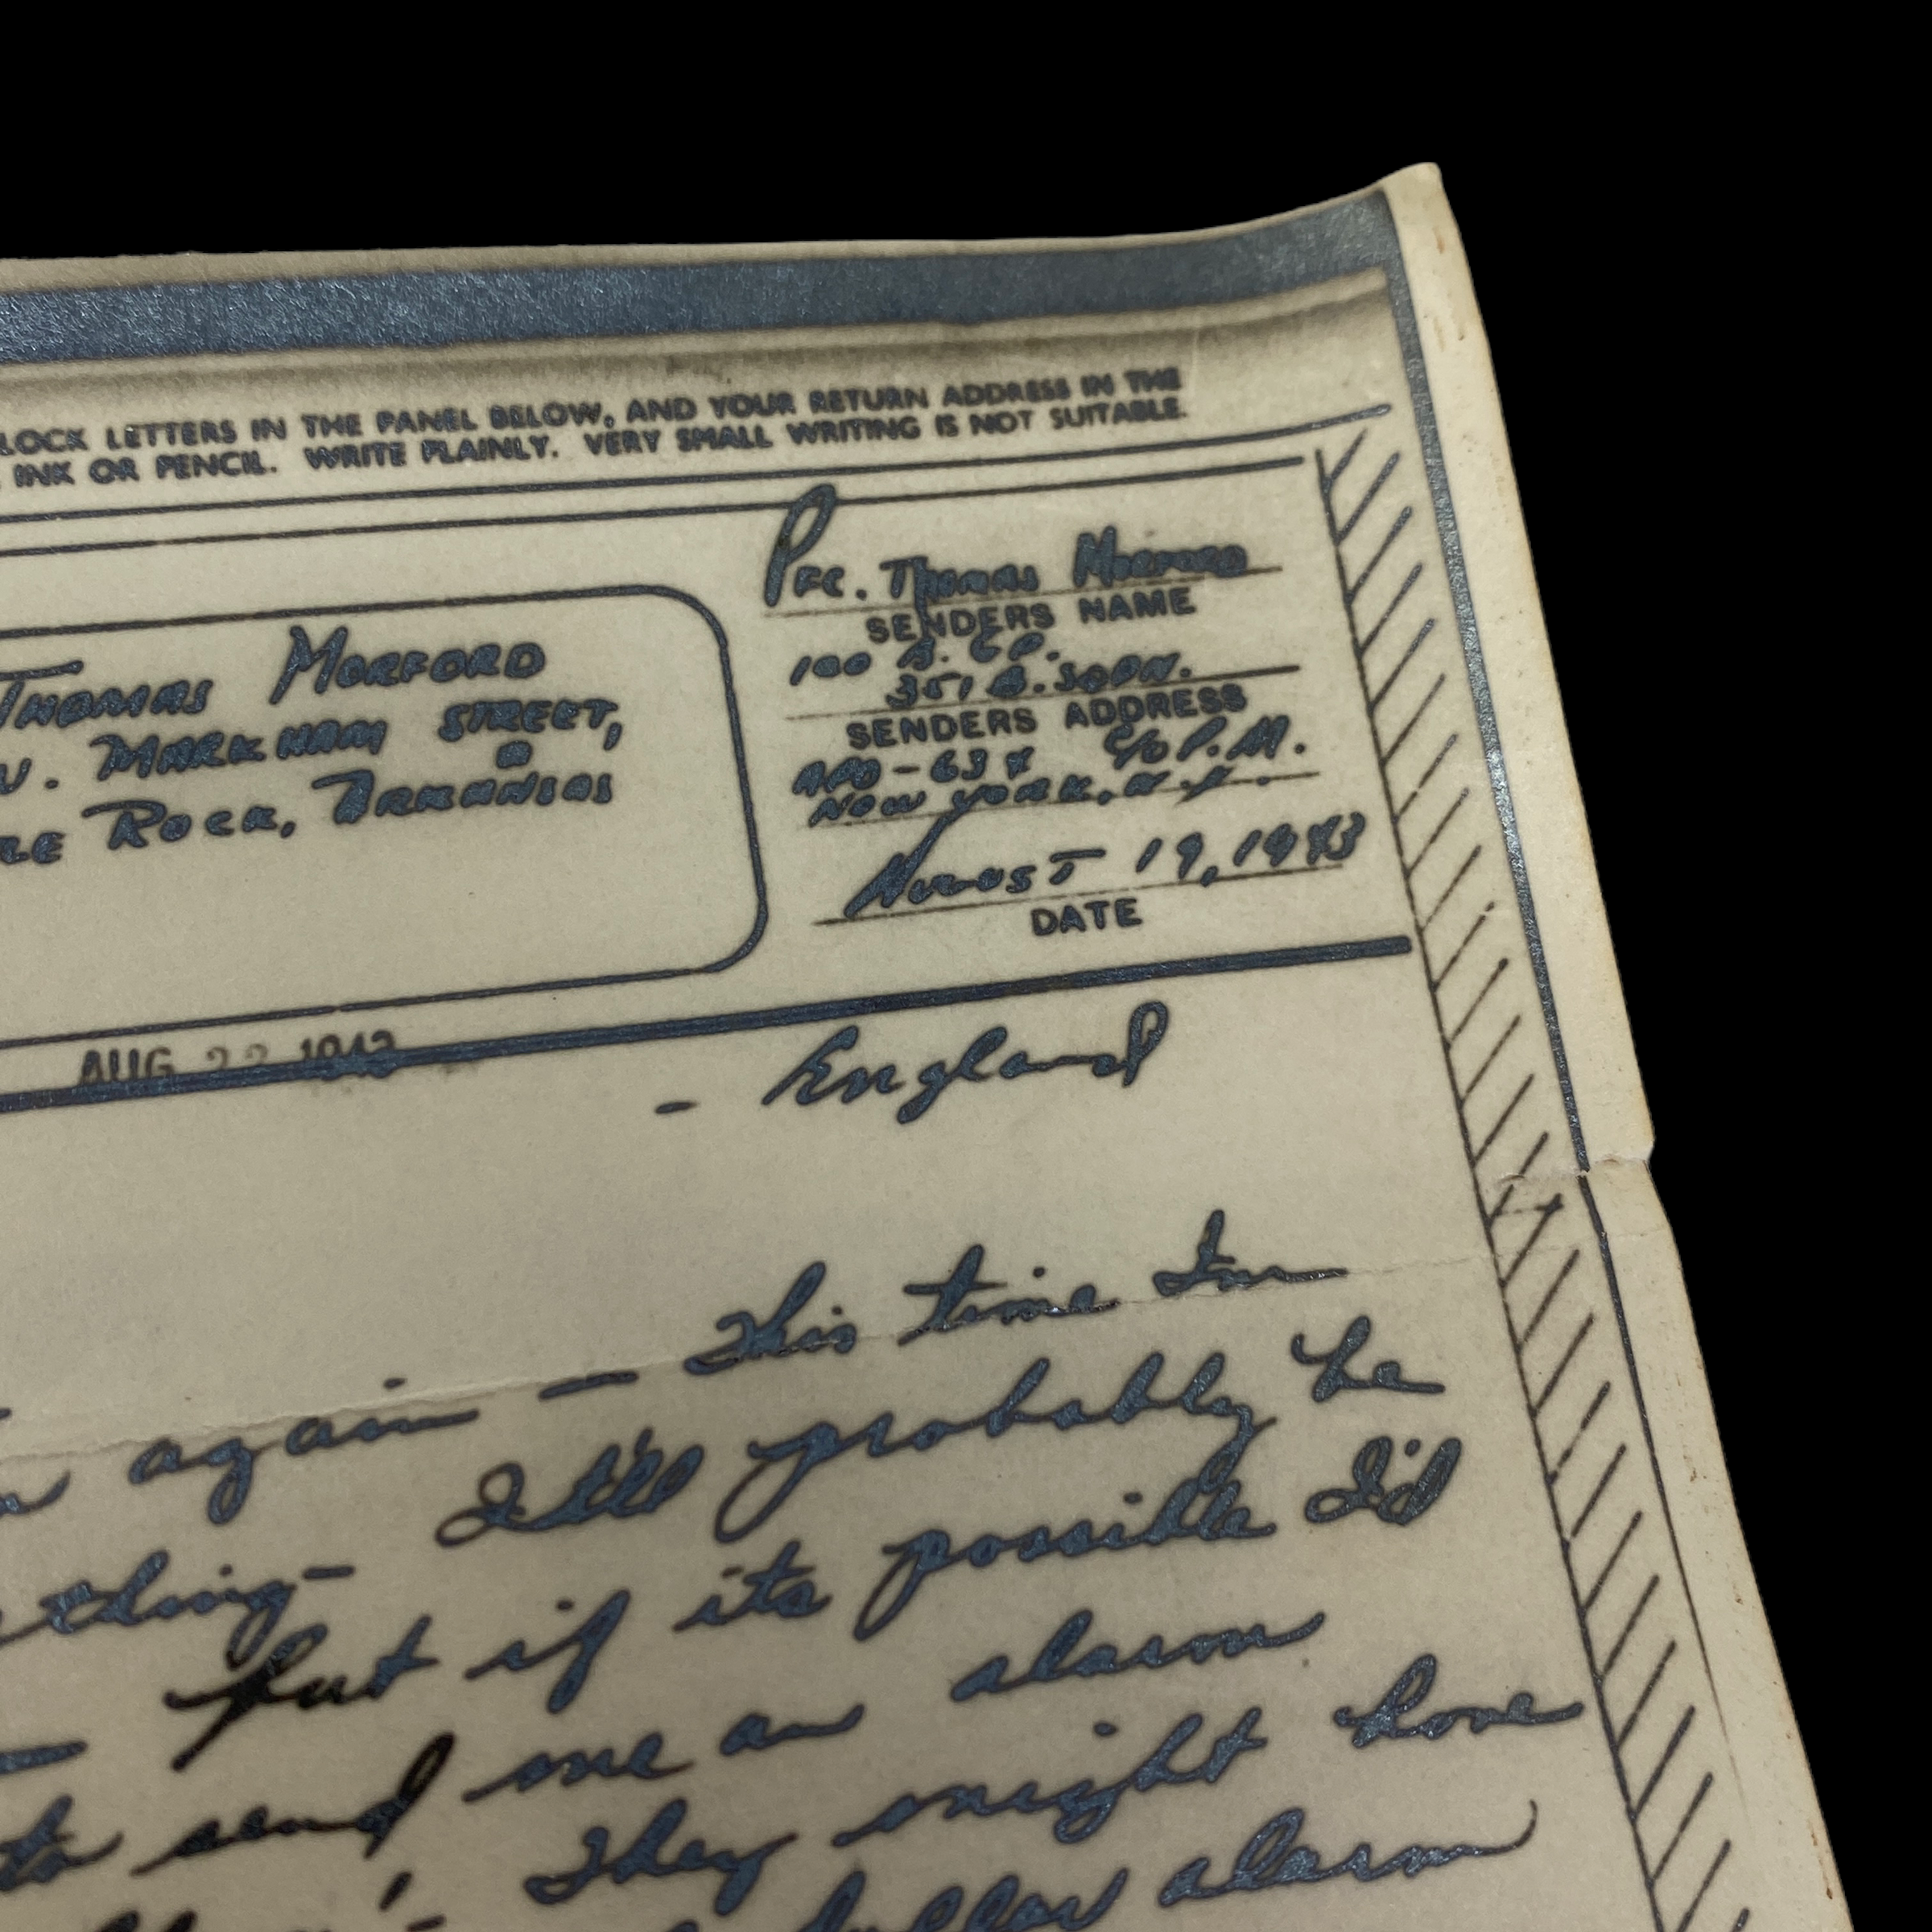 LOCK LETTERS IN THE PANEL BELOW, AND YOUR RETURN ADDRESS IN THE
INK OR PENCIL. WRITE PLAINLY. VERY SMALL WRITING IS NOT SUITABLE.
THOMAS MORFORD
W. MARKHAM STREET,
ROCK, ARKANSAS
PFC. THOMAS MORFORD
SENDERS NAME
351
SENDERS ADDRESS
APO - 637 C/O P.M.
NEW YORK, N.Y.
AUGUST 19, 1943
DATE
AUG 22 1943
- England
again - This time I'm
thing - I'll probably be
- but if its possible I'd
to send me an alarm
They might have
dollar alarm